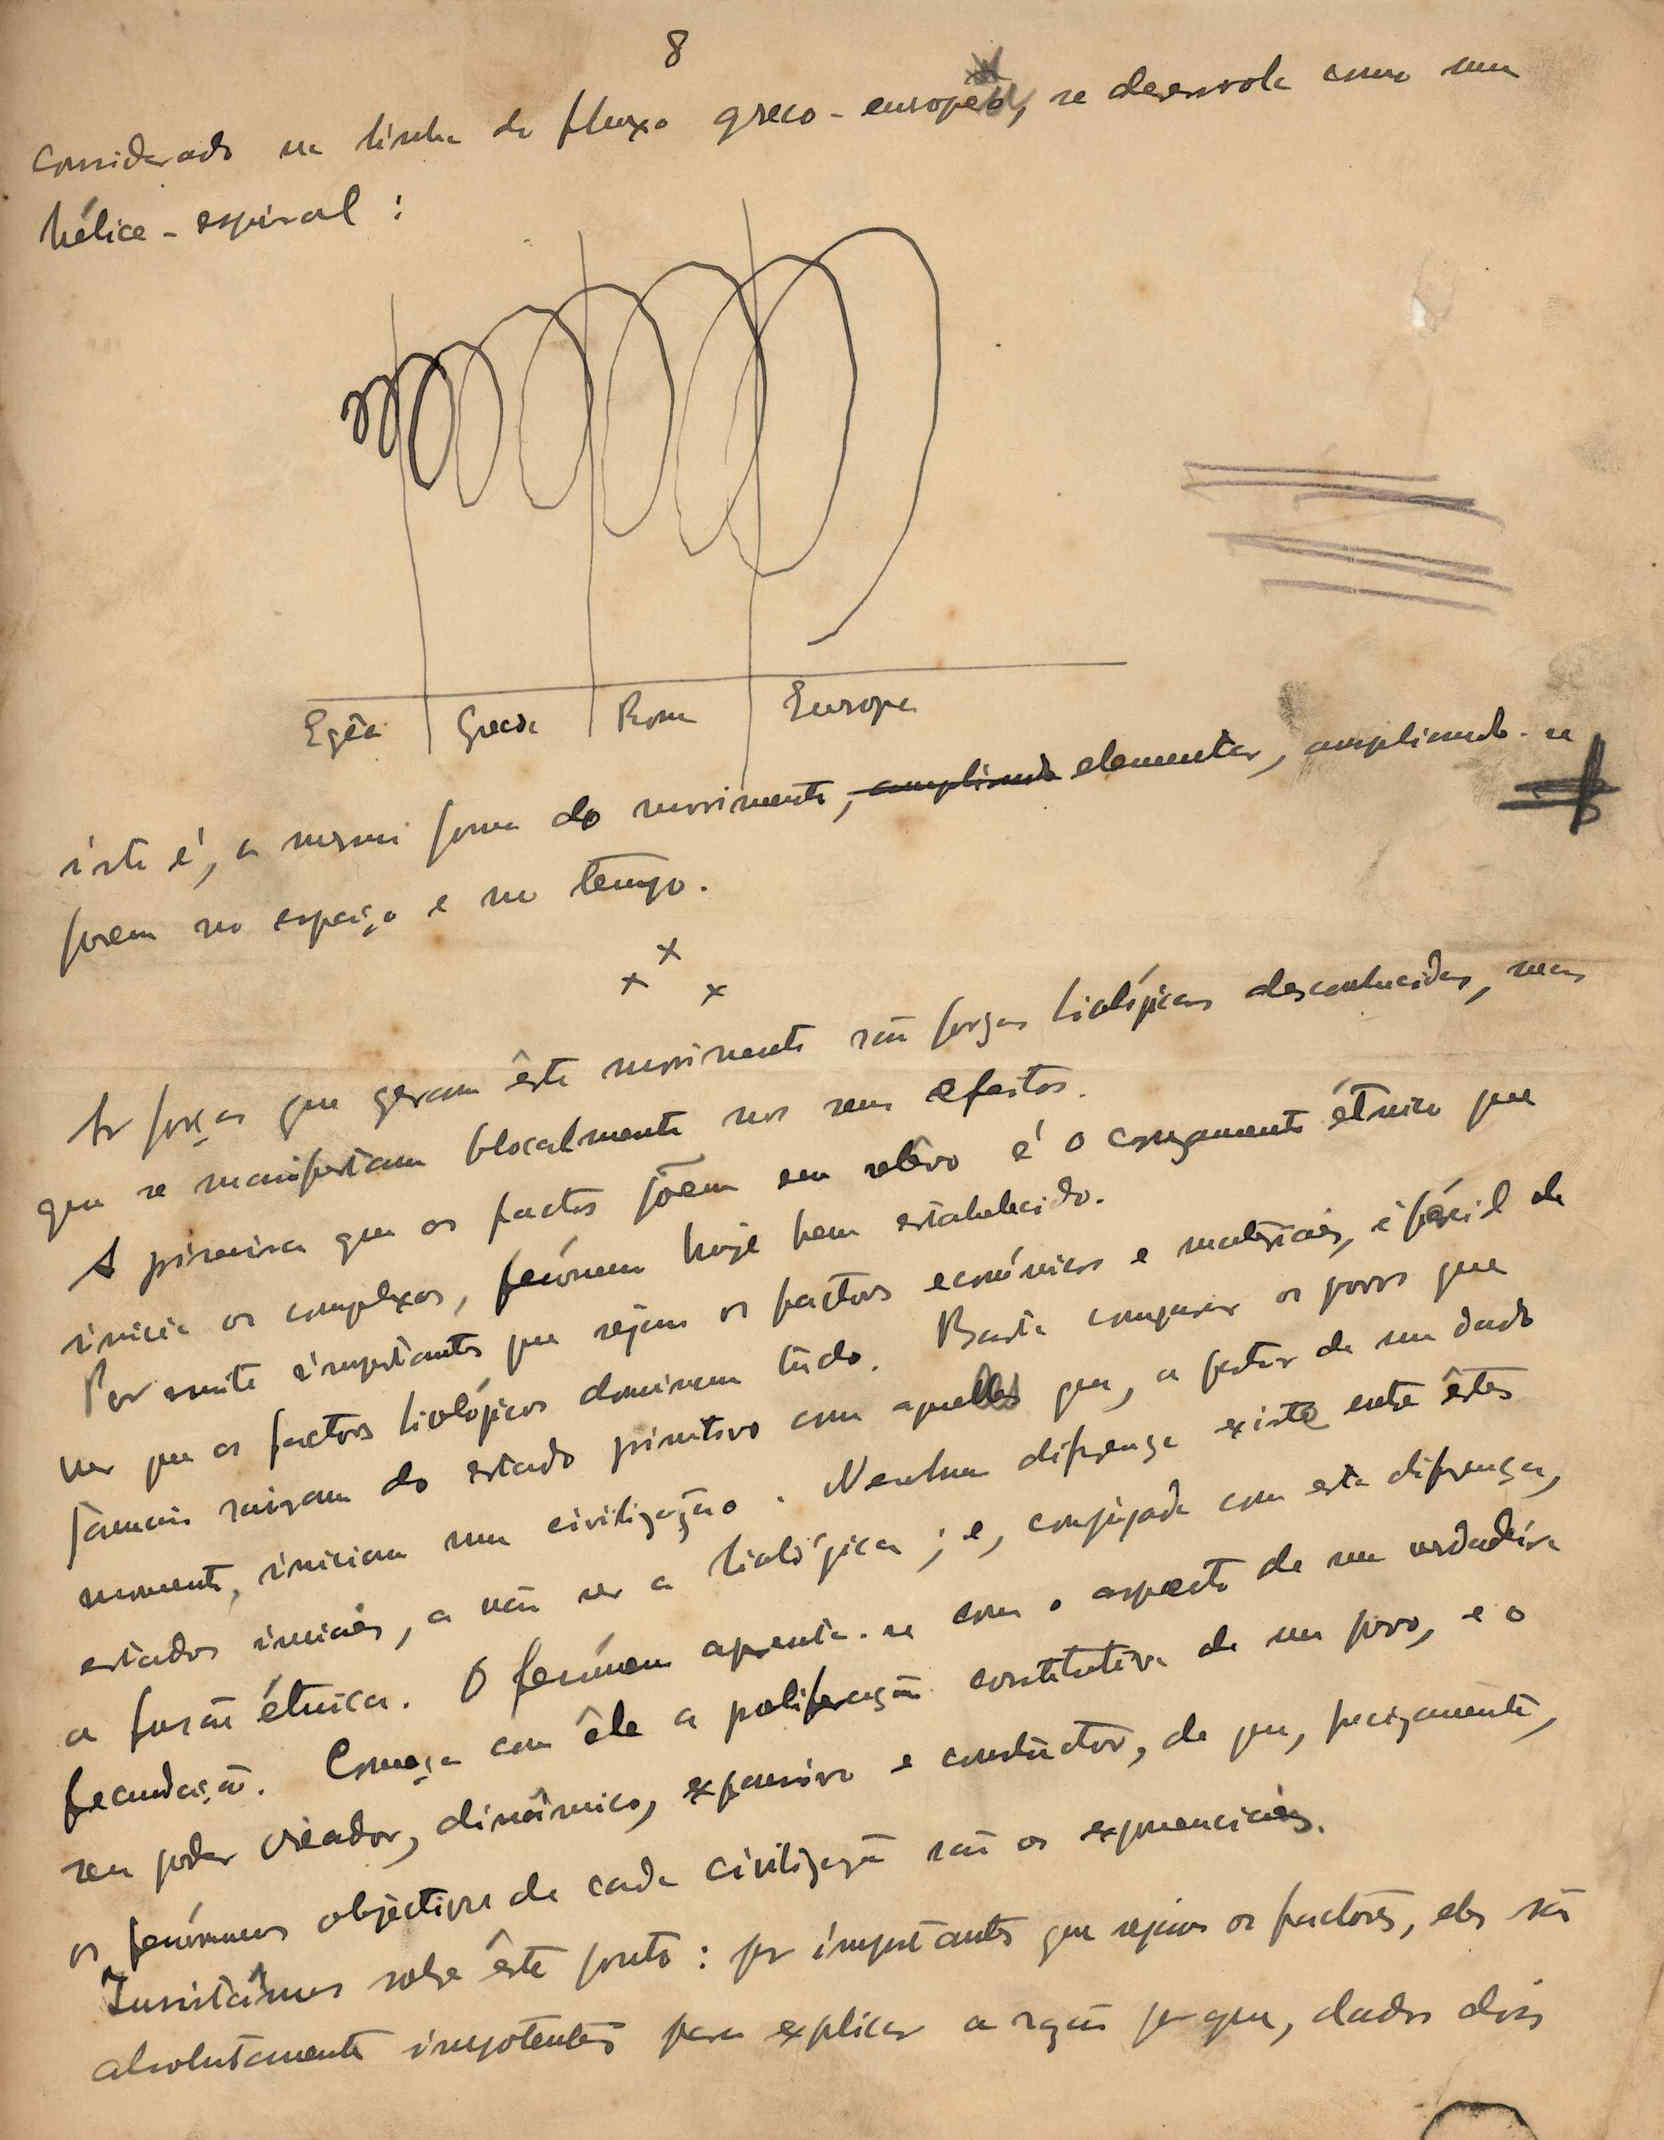 8
considerado na linha do fluxo greco-europeu, se desenvole como uma
hélice-espiral:
Egêa Grecia Roma Europa
isto é, a mesma forma do movimento, ampliando elementar, ampliando-se
porem no espaço e no tempo.
x x x
As forças que geram êste movimento são forças biológicas desconhecidas, mas
que se manifestam blocalmente nos seus efeitos.
A primeira que os factos põem em relêvo é o cruzamento étnico que
inicia os complexos, fenómeno hoje bem estabelecido.
Por muito importantes que sejam os factores económicos e materiais, é fácil de
ver que os factores biológicos dominam tudo. Basta comparar os povos que
jamais saíram do estado primitivo com aqueles que, a partir de um dado
momento, iniciam uma civilização. Nenhuma diferença existe entre êstes
estados iniciais, a não ser a biológica; e, conjugada com esta diferença,
a fusão étnica. O fenómeno apresenta-se com o aspecto de uma verdadeira
fecundação. Começa com êle a proliferação constitutiva de um povo, e o
seu poder creador, dinâmico, expansivo e construtor, de que, precisamente,
os fenómenos objectivos de cada civilização são os exponenciais.
Insistâmos sobre êste ponto: por importantes que sejam os factores, eles são
absolutamente impotentes para explicar a razão por que, dados dois